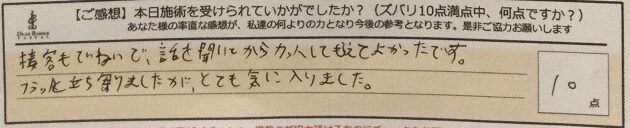 【ご感想】本日施術を受けられていかがでしたか？（ズバリ10点満点中、何点ですか？）
あなた様の率直な感想が、私達の何よりの力となり今後の参考となります。是非ご協力お願いします
接客もていねいで、話を聞いてからカットしてもらえてよかったです。
フラッと立ち寄りましたが、とても気に入りました。
10点